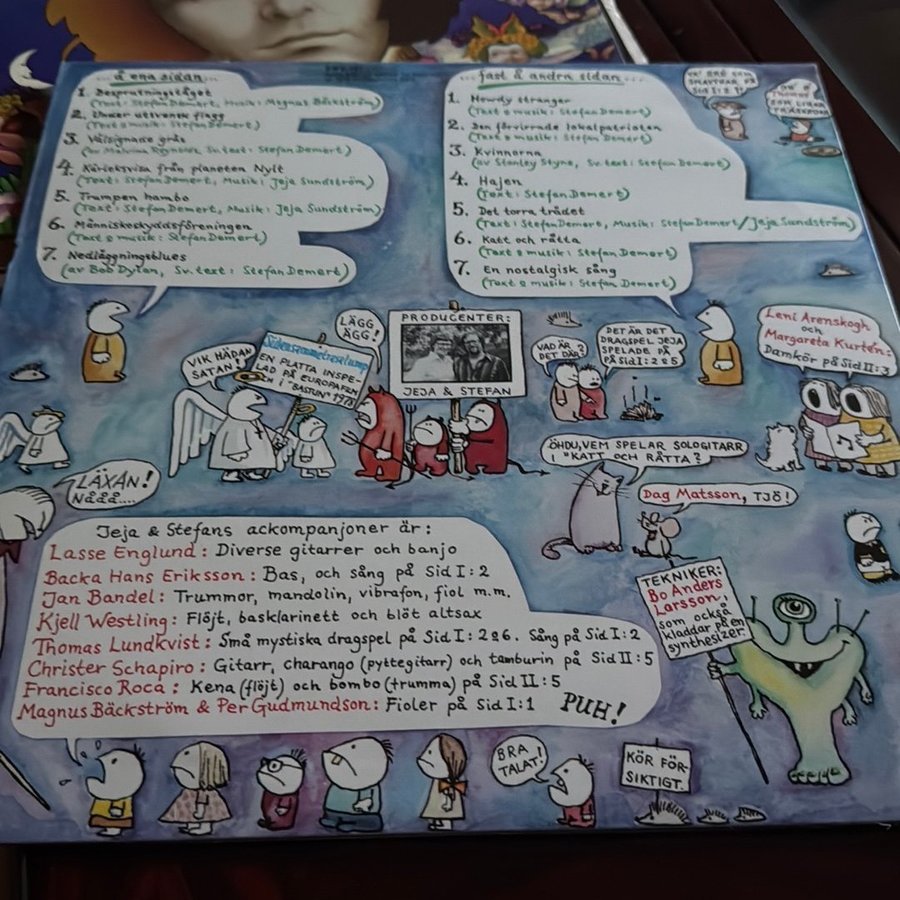 ...å ena sidan...
1. Besprutningståget
(Text: Stefan Demert, Musik: Magnus Bäckström)
2. Under utsvensk flagg
(Text & musik: Stefan Demert)
3. Välsignade gräs
(av Malvina Reynolds, Sv. text: Stefan Demert)
4. Kärleksvisa från planeten Nylt
(Text: Stefan Demert, Musik: Jeja Sundström)
5. Trampen hambo
(Text: Stefan Demert, Musik: Jeja Sundström)
6. Människoskyddsföreningen
(Text & musik: Stefan Demert)
7. Nedläggningsblues
(av Bob Dylan, Sv. text: Stefan Demert)
...fast å andra sidan...
1. Howdy stranger
(Text & musik: Stefan Demert)
2. Den förvirrade lokalpatrioten
(Text & musik: Stefan Demert)
3. Kvinnorna
(av Stanley Styne, Sv. text: Stefan Demert)
4. Hajen
(Text: Stefan Demert)
5. Det torra trädet
(Text: Stefan Demert, Musik: Stefan Demert/Jeja Sundström)
6. Katt och råtta
(Text & musik: Stefan Demert)
7. En nostalgisk sång
(Text & musik: Stefan Demert)
SID I:2?
VIK HÄDAN
SATAN!
EN PLATTA INSPE-
LAD PÅ EUROPAFILM
OCH I "BASTUN" 1971
LÄGG
ÄGG!
PRODUCENTER:
JEJA & STEFAN
VAD ÄR
DET DÄR?
DET ÄR DET
DRAGSPEL JEJA
SPELADE PÅ
PÅ SID I: 2 & 5
Leni Arenskogh
och
Margareta Kurtén:
Damkör på Sid II: 3
ÖHDU, VEM SPELAR SOLOGITARR
I "KATT OCH RÅTTA?
Dag Matsson, TJÖ!
LÄXAN!
NÅÅÅ....
Jeja & Stefans ackompanjoner är:
Lasse Englund: Diverse gitarrer och banjo
Backa Hans Eriksson: Bas, och sång på Sid I: 2
Jan Bandel: Trummor, mandolin, vibrafon, fiol m.m.
Kjell Westling: Flöjt, basklarinett och blöt altsax
Thomas Lundkvist: Små mystiska dragspel på Sid I: 2&6. Sång på Sid I: 2
Christer Schapiro: Gitarr, charango (pyttegitarr) och tamburin på Sid II: 5
Francisco Roca: Kena (flöjt) och bombo (trumma) på Sid II: 5
Magnus Bäckström & Per Gudmundson: Fioler på Sid I: 1
PUH!
TEKNIKER:
Bo Anders
Larsson,
som också
kladdar på en
synthesizer.
BRA
TALAT!
KÖR FÖR-
SIKTIGT.